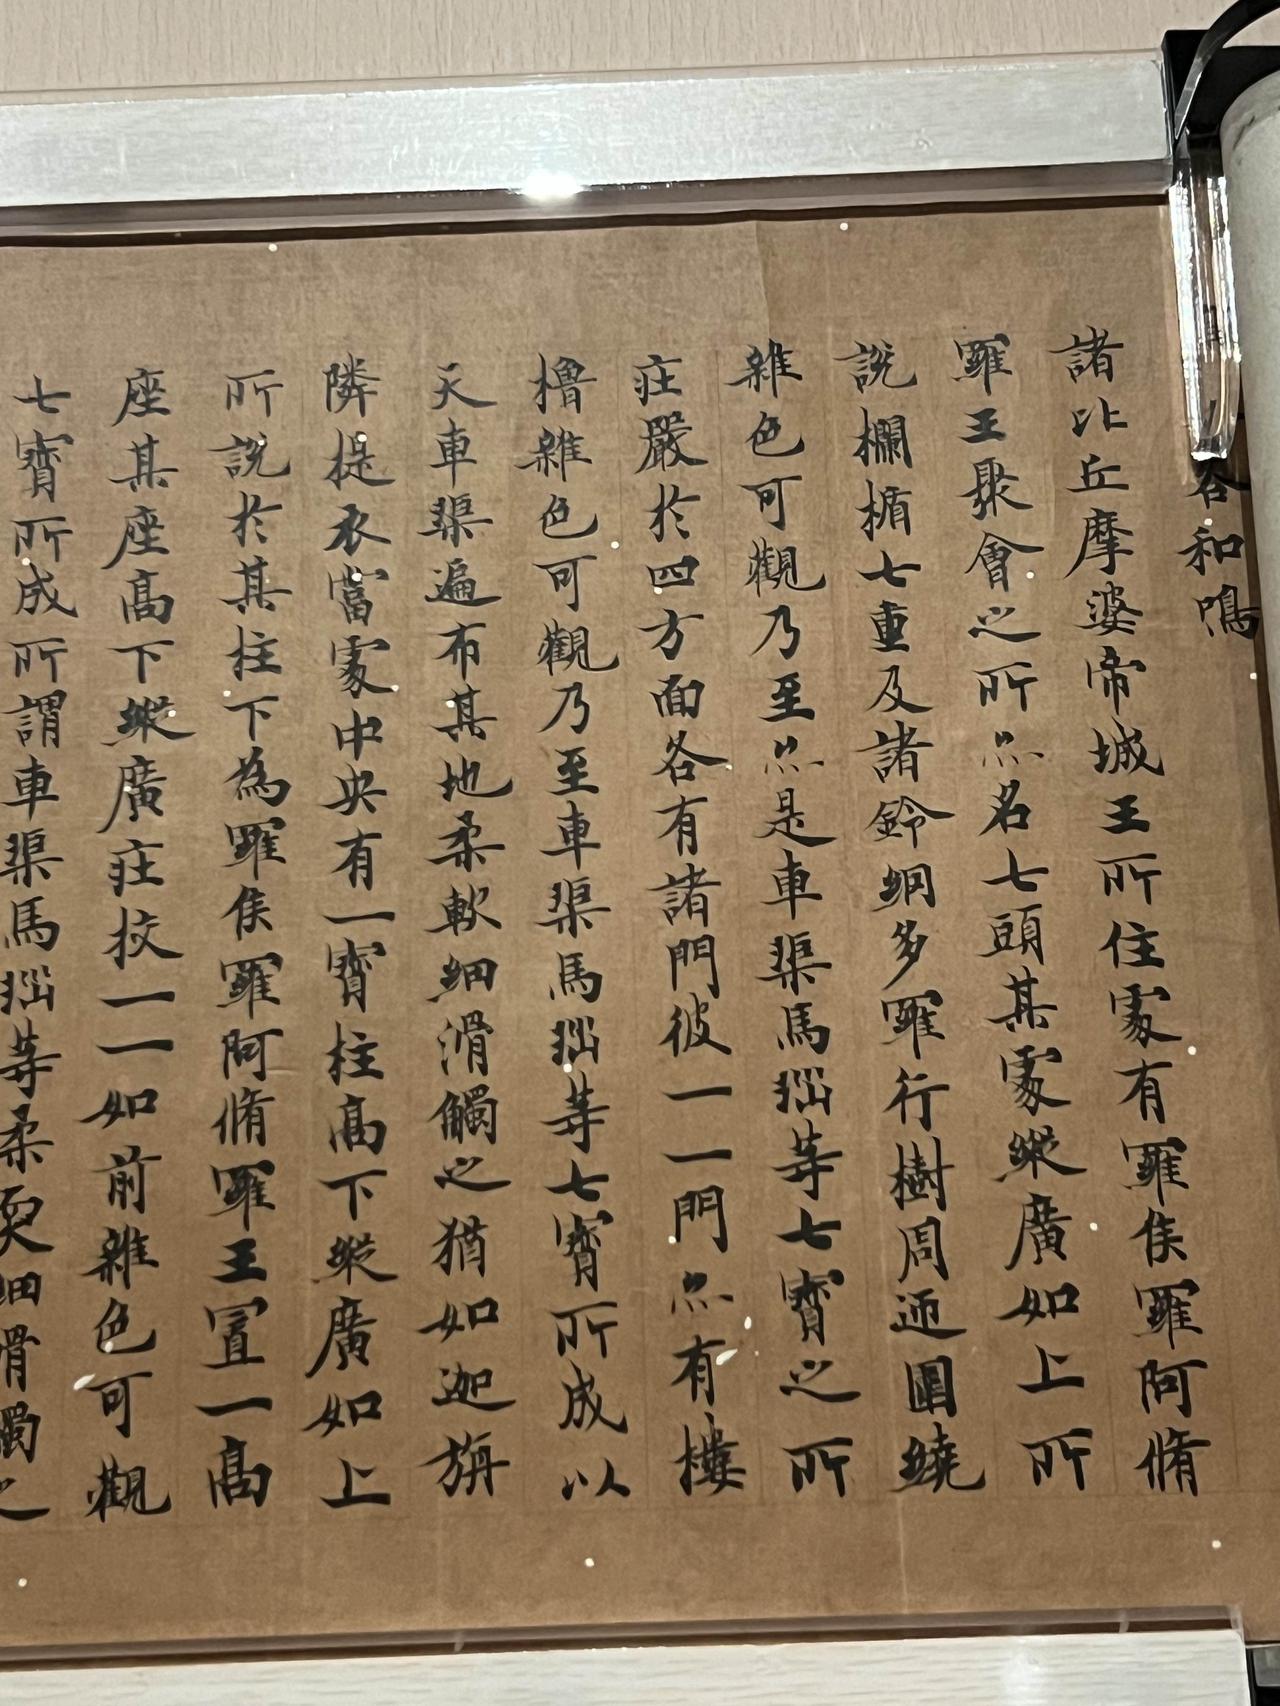 各和鳴
諸比丘摩婆帝城王所住處有羅睺羅阿脩
羅王聚會之所亦名七頭其處縱廣如上所
說欄楯七重及諸鈴網多羅行樹周迊圍繞
雜色可觀乃至亦是車𤦲馬瑙等七寶之所
莊嚴於四方面各有諸門彼一一門亦有樓
櫓雜色可觀乃至車𤦲馬瑙等七寶所成以
天車𤦲遍布其地柔軟細滑觸之猶如迦旃
隣提衣當處中央有一寶柱高下縱廣如上
所說於其柱下為羅睺羅阿脩羅王置一高
座其座高下縱廣莊挍一一如前雜色可觀
七寶所成所謂車𤦲馬瑙等柔耎細滑觸之